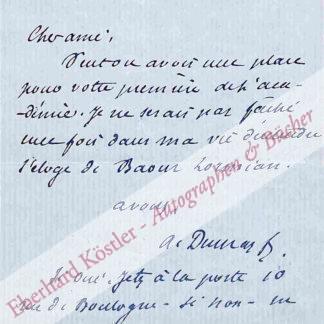 Cher ami,
Peut on avoir une place
pour votre première de l'aca-
démie. Je ne serais pas fâché
une fois dans ma vie d'entendre
l'éloge de Baour Lormian.
a vous,
A Dumas f.
Si oui, Jetez à la poste 10
rue de Boulogne - Si non - ne
Eberhard Köstler - Autographen & Bücher